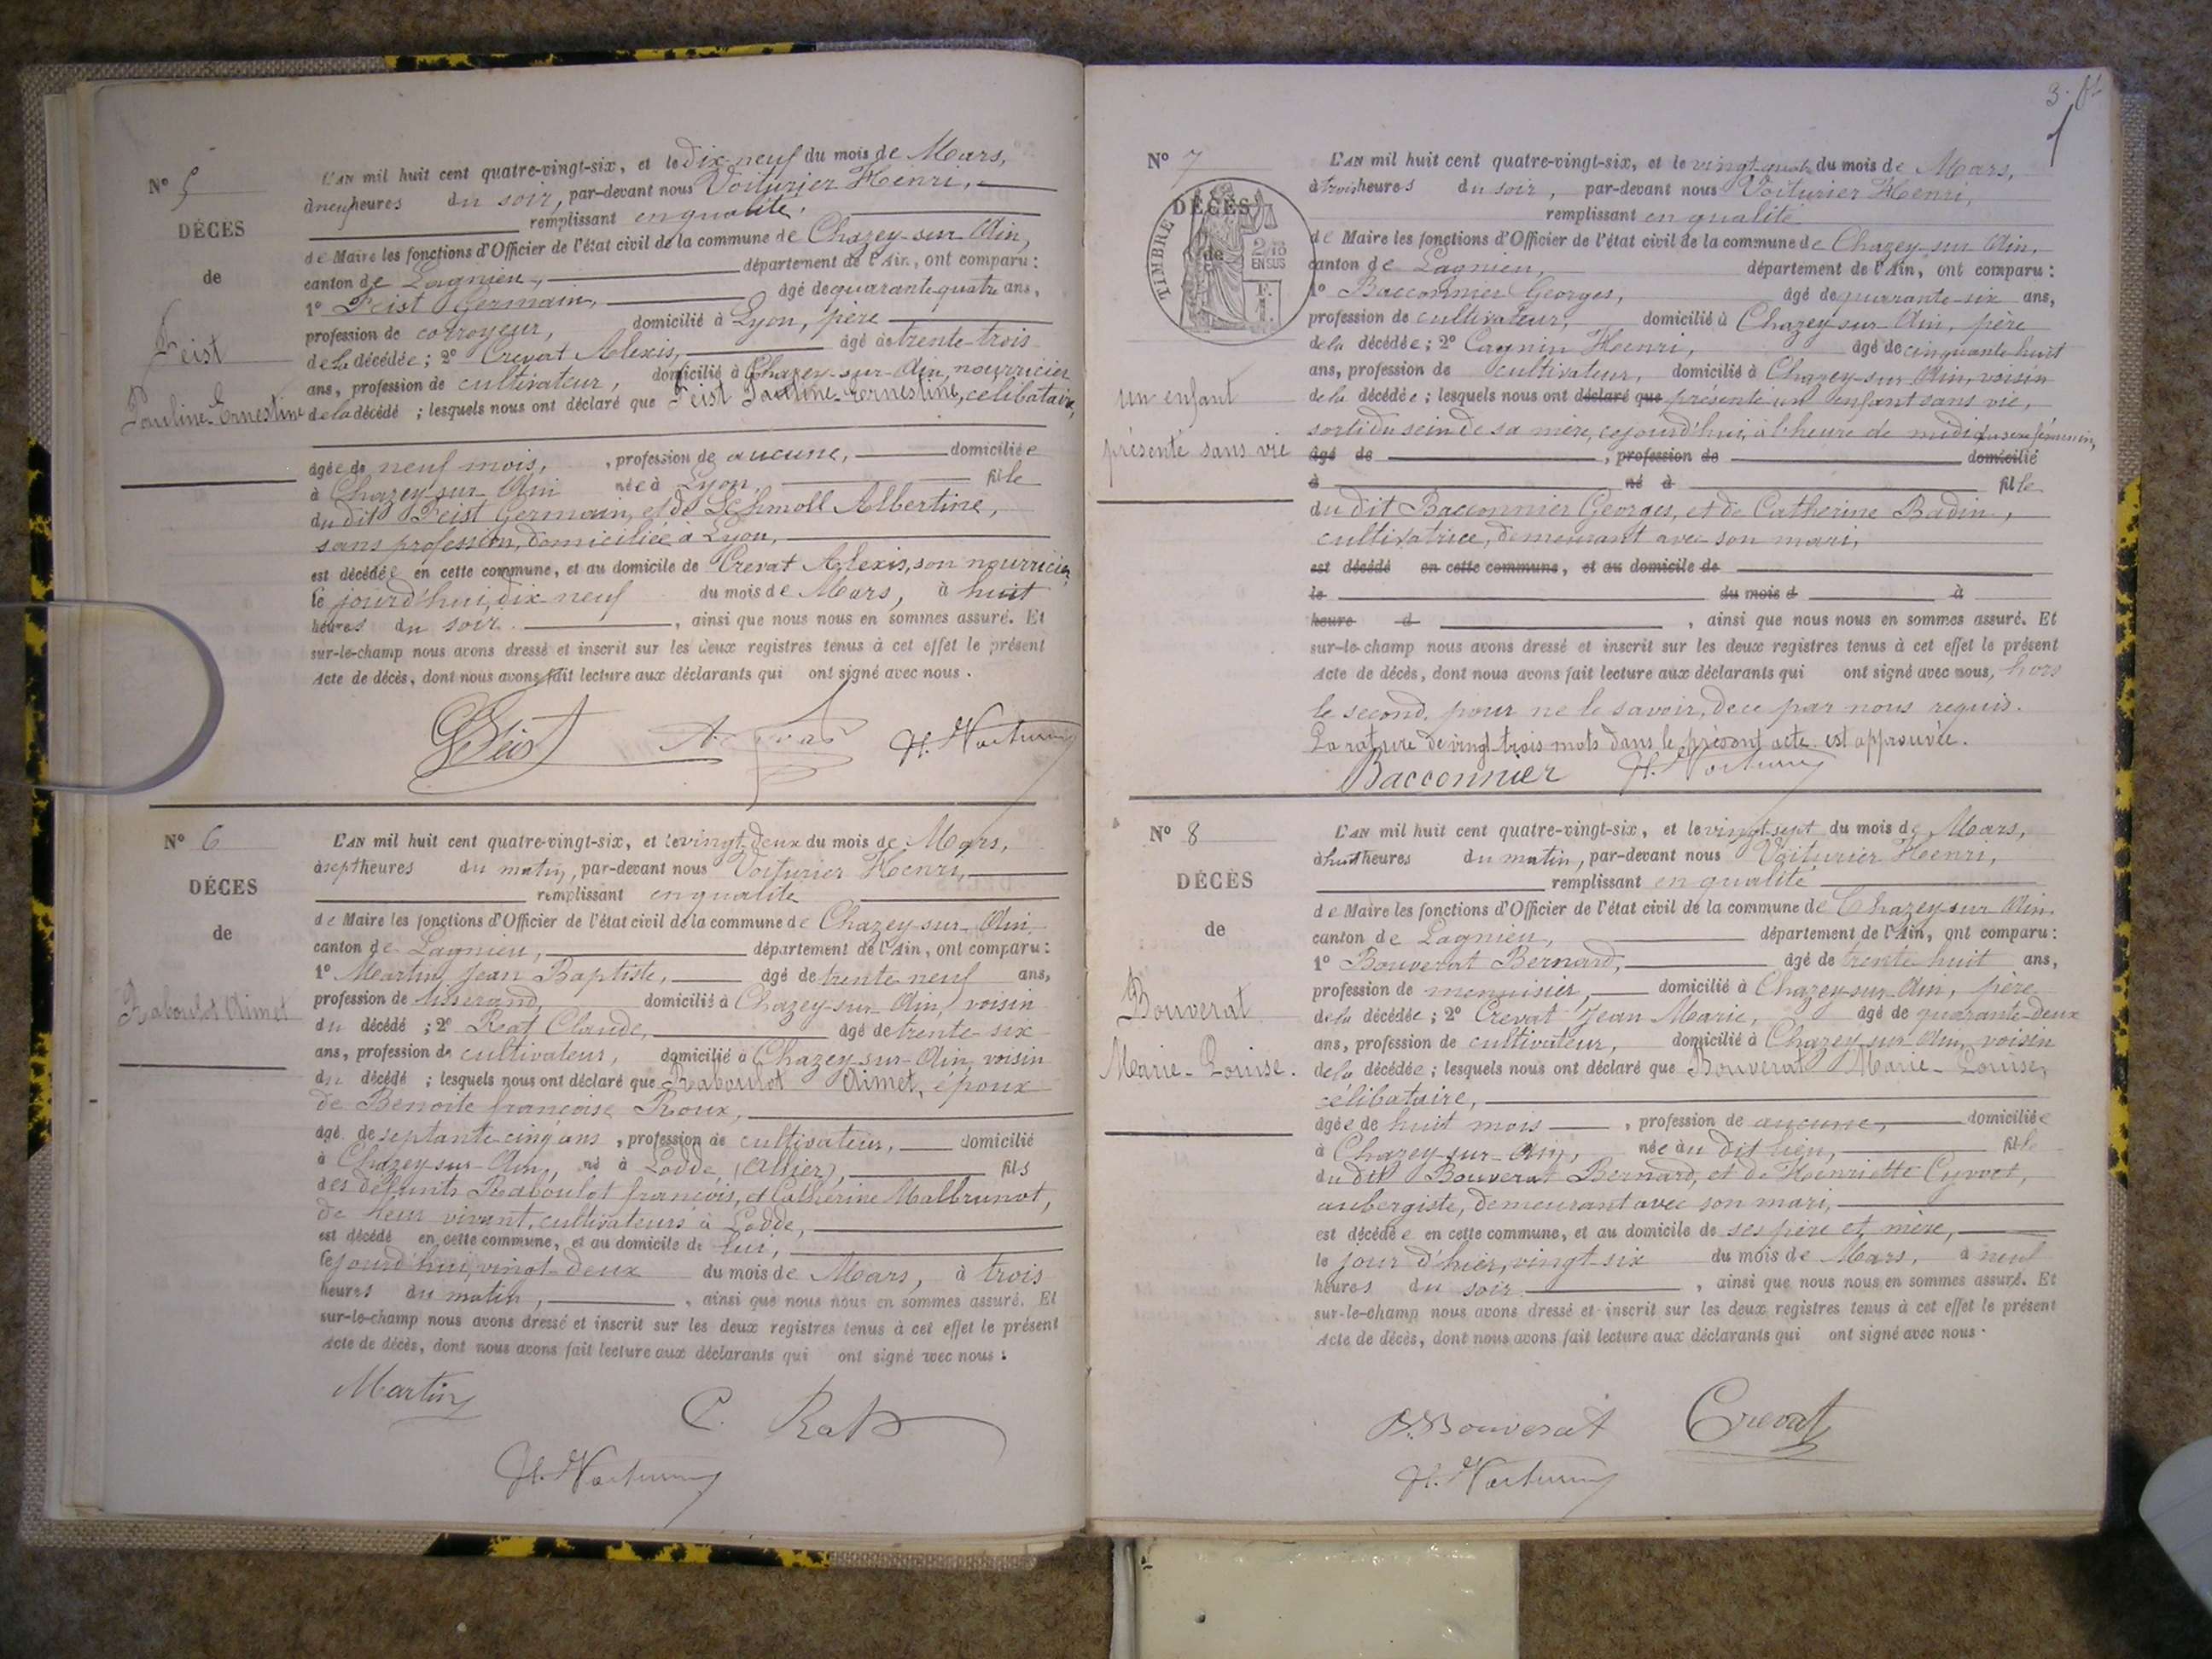 N° 5
DÉCÈS
de
Feist
Pauline Ernestine
L'AN mil huit cent quatre-vingt-six, et le Dix neuf du mois de Mars,
à neuf heures du soir, par-devant nous Voiturier Henri,
remplissant en qualité
de Maire les fonctions d'Officier de l'état civil de la commune de Chazey-sur-Ain,
canton de Lagnieu, département de l'Ain, ont comparu :
1° Feist Germain, âgé de quarante quatre ans,
profession de corroyeur, domicilié à Lyon, père
de la décédée ; 2° Crevat Alexis, âgé de trente-trois
ans, profession de cultivateur, domicilié à Chazey-sur-Ain, nourricier
de la décédé ; lesquels nous ont déclaré que Feist Pauline-Ernestine, célibataire,
âgée de neuf mois, , profession de aucune, domiciliée
à Chazey-sur-Ain née à Lyon, fille
du dit Feist Germain, et de Schmoll Albertine,
sans profession, domiciliée à Lyon,
est décédée en cette commune, et au domicile de Crevat Alexis, son nourricier,
le jourd'hui, dix neuf du mois de Mars, à huit
heures du soir , ainsi que nous nous en sommes assuré. Et
sur-le-champ nous avons dressé et inscrit sur les deux registres tenus à cet effet le présent
Acte de décès, dont nous avons fait lecture aux déclarants qui ont signé avec nous.
Feist H. Voiturier
N° 6
DÉCES
de
Raboulot Aimet
L'AN mil huit cent quatre-vingt-six, et le vingt-deux du mois de Mars,
à sept heures du matin, par-devant nous Voiturier Henri,
remplissant en qualité
de Maire les fonctions d'Officier de l'état civil de la commune de Chazey-sur-Ain,
canton de Lagnieu, département de l'Ain, ont comparu :
1° Martin Jean Baptiste, âgé de trente neuf ans,
profession de tisserand, domicilié à Chazey-sur-Ain, voisin
du décédé ; 2° Reat Claude, âgé de trente-six
ans, profession de cultivateur, domicilié à Chazey-sur-Ain, voisin
du décédé ; lesquels nous ont déclaré que Raboulot Aimet, époux
de Benoite françoise Roux,
âgé de septante cinq ans , profession de cultivateur, domicilié
à Chazey-sur-Ain, né à Lodde, (Allier), fils
des défunts Raboulot françois, et Catherine Malbrunot,
de leur vivant, cultivateurs à Lodde,
est décédé en cette commune, et au domicile de lui,
le jourd'hui, vingt-deux du mois de Mars, à trois
heures du matin, , ainsi que nous nous en sommes assuré. Et
sur-le-champ nous avons dressé et inscrit sur les deux registres tenus à cet effet le présent
Acte de décès, dont nous avons fait lecture aux déclarants qui ont signé avec nous.
Martin C. Rat
H. Voiturier
3.
N° 7
DÉCÈS
de
TIMBRE
2/10 EN SUS
un enfant
présenté sans vie
L'AN mil huit cent quatre-vingt-six, et le vingt-quatre du mois de Mars,
à trois heures du soir, par-devant nous Voiturier Henri,
remplissant en qualité
de Maire les fonctions d'Officier de l'état civil de la commune de Chazey-sur-Ain,
canton de Lagnieu, département de l'Ain, ont comparu :
1° Bacconnier Georges, âgé de quarante-six ans,
profession de cultivateur, domicilié à Chazey-sur-Ain, père
de la décédée ; 2° Cagnin Henri, âgé de cinquante-huit
ans, profession de cultivateur, domicilié à Chazey-sur-Ain, voisin
de la décédée ; lesquels nous ont déclaré que présenté un enfant sans vie,
sorti du sein de sa mère, ce jourd'hui, à l'heure de midi du sexe féminin,
âgé de , profession de domicilié
à né à fille
du dit Bacconnier Georges, et de Catherine Badin,
cultivatrice, demeurant avec son mari,
est décédé en cette commune, et au domicile de
le du mois d à
heure d , ainsi que nous nous en sommes assuré. Et
sur-le-champ nous avons dressé et inscrit sur les deux registres tenus à cet effet le présent
Acte de décès, dont nous avons fait lecture aux déclarants qui ont signé avec nous, hors
le second, pour ne le savoir, de ce par nous requis.
La rature de vingt-trois mots dans le présent acte est approuvée.
Bacconnier H. Voiturier
N° 8
DÉCÈS
de
Bouverat
Marie-Louise.
L'AN mil huit cent quatre-vingt-six, et le vingt-sept du mois de Mars,
à huit heures du matin, par-devant nous Voiturier Henri,
remplissant en qualité
de Maire les fonctions d'Officier de l'état civil de la commune de Chazey-sur-Ain.
canton de Lagnieu, département de l'Ain, ont comparu :
1° Bouverat Bernard, âgé de trente huit ans,
profession de menuisier, domicilié à Chazey-sur-Ain, père
de la décédée ; 2° Crevat Jean Marie, âgé de quarante-deux
ans, profession de cultivateur, domicilié à Chazey-sur-Ain, voisin
de la décédée ; lesquels nous ont déclaré que Bouverat Marie-Louise,
célibataire,
âgée de huit mois , profession de aucune, domiciliée
à Chazey-sur-Ain, née au dit lieu, fille
du dit Bouverat Bernard, et de Henriette Cyvoct,
aubergiste, demeurant avec son mari,
est décédée en cette commune, et au domicile de ses père et mère,
le jour d'hier, vingt-six du mois de Mars, à neuf
heures du soir , ainsi que nous nous en sommes assuré. Et
sur-le-champ nous avons dressé et inscrit sur les deux registres tenus à cet effet le présent
Acte de décès, dont nous avons fait lecture aux déclarants qui ont signé avec nous.
B. Bouverat Crevat
H. Voiturier